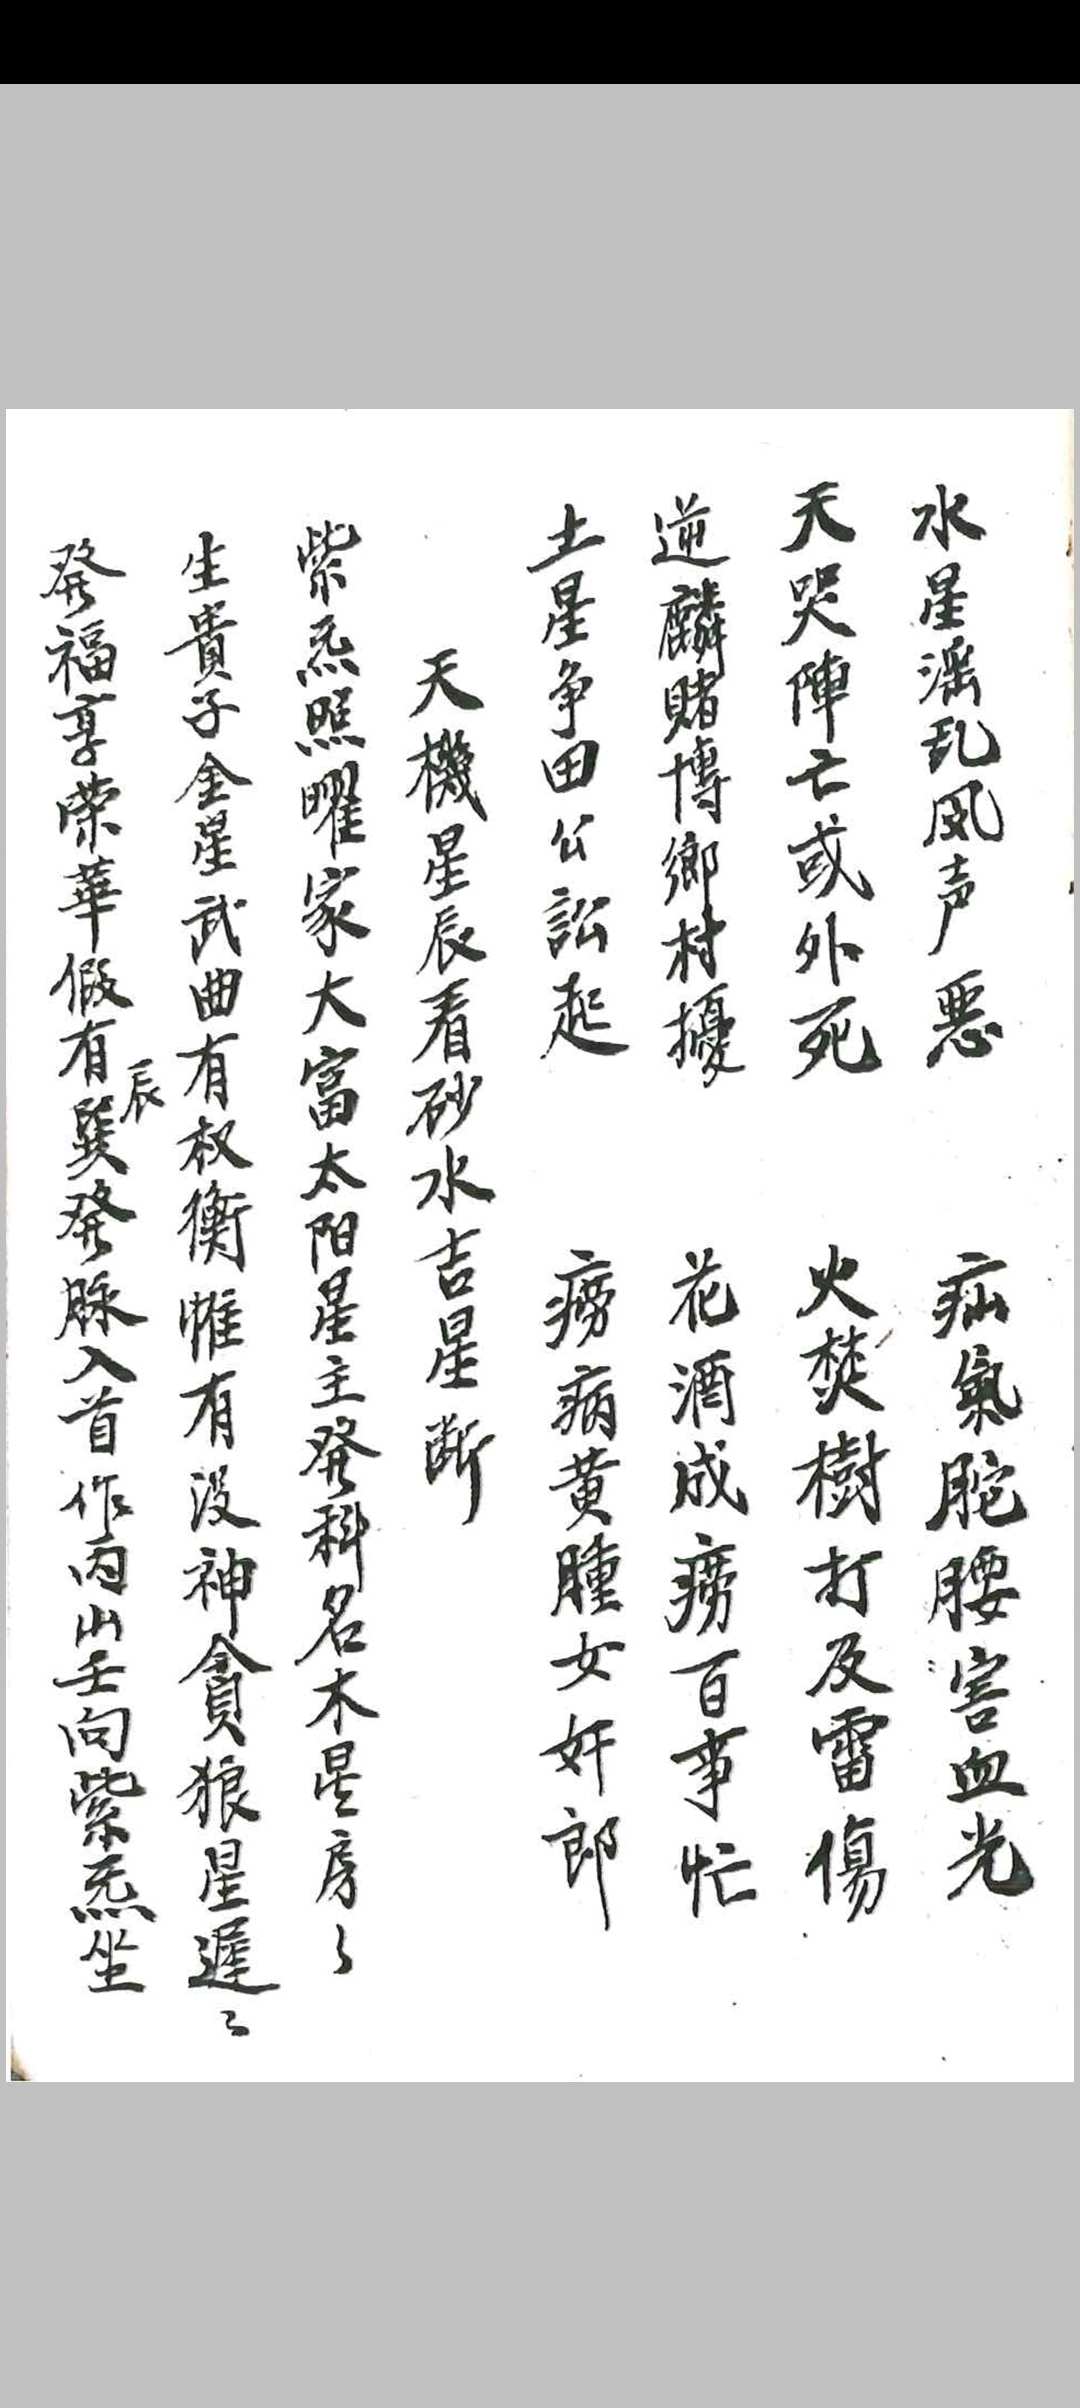 水星滛乱风声惡　疝氣鮀腰害血光
天哭陣亡或外死　火焚樹打及雷傷
逆麟賭博鄉村擾　花酒成痨百事忙
土星争田公訟起　痨病黄腫女奸郎
天機星辰看砂水吉星断
紫炁照曜家大富太阳星主發科名木星房〻
生貴子金星武曲有权衡惟有没神貪狼星遲〻
發福享荣華假有巽辰發脉入首作丙山壬向紫炁坐